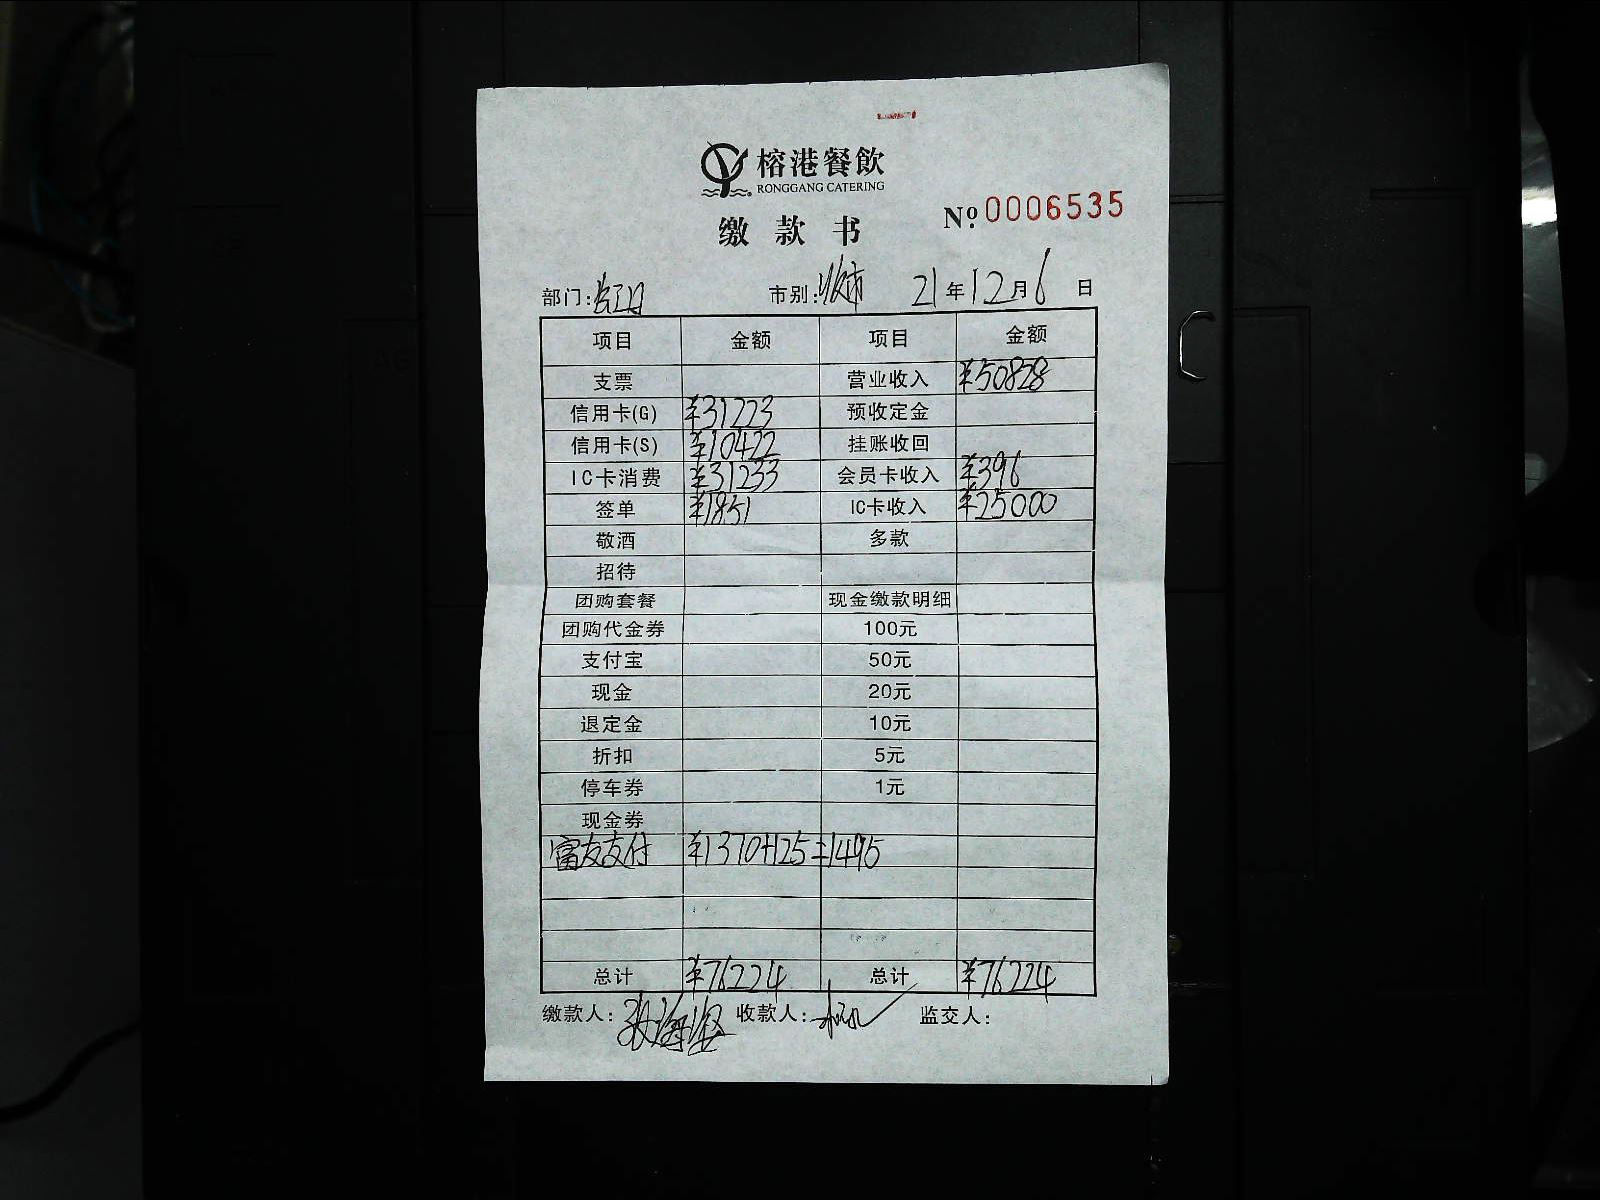 榕港餐飲
RONGGANG CATERING
缴款书
No. 0006535
部门: 市别: 收市 21年12月6日
项目 金额 项目 金额
支票 营业收入 ¥50828
信用卡(G) ¥31223 预收定金
信用卡(S) ¥10422 挂账收回
IC卡消费 ¥31233 会员卡收入 ¥396
签单 ¥1851 IC卡收入 ¥25000
敬酒 多款
招待
团购套餐 现金缴款明细
团购代金券 100元
支付宝 50元
现金 20元
退定金 10元
折扣 5元
停车券 1元
现金券
富友支付 ¥1370+125=1495
总计 ¥76224 总计 ¥76224
缴款人: 收款人: 监交人: